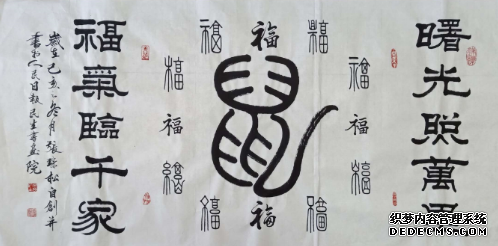 曙光照萬里
福
福
福
福
福
福
鼠
福
福
福
福
福
福
福氣臨千家
歲在己亥冬月張 松自創并
書於人民日報民生書画院
织梦内容管理系统
DEDECMS.COM